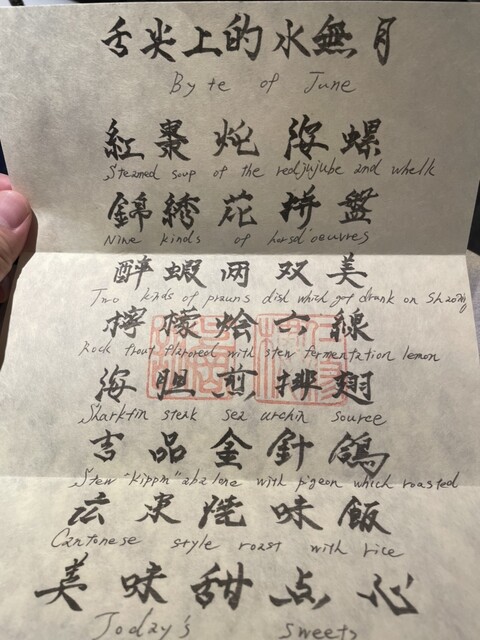 舌尖上的水無月
Byte of June
紅棗炖海螺
Steamed soup of the redjujube and whelk
錦綉花拼盤
Nine kinds of horsd'oeuvres
醉蝦両双美
Two kinds of prawns dish which got drank on Shaoxing
檸檬烩六線
Rock trout flavored with stew fermentation lemon
海胆煎排翅
Sharkfin steak sea urchin source
吉品金針鴿
Stew "kippin" abalone with pigeon which roasted
広東焼味飯
Cantonese style roast with rice
美味甜点心
Today's Sweets